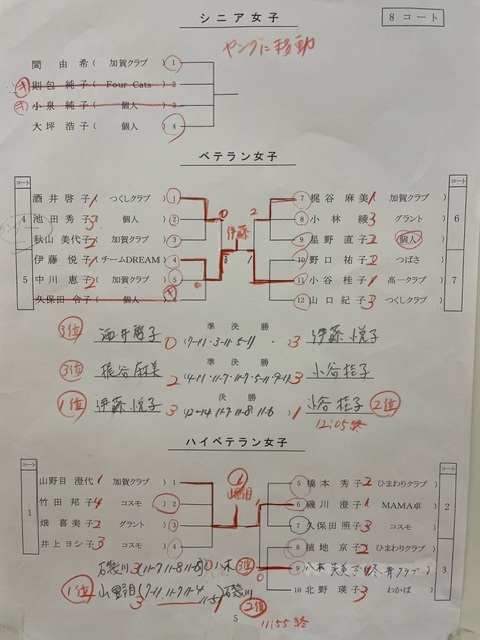 シニア女子
8コート
ヤングに移動
間 由 希( 加賀クラブ ) 1
キ 則 包 純 子( Four Cats ) 2
キ 小 泉 純 子( 個人 ) 3
大 坪 浩 子( 個人 ) 4
ベテラン女子
コート
コート
酒 井 啓 子 1 つくしクラブ ) 1
池 田 秀 子 3 個人 ) 2
秋山 美代子 2 加賀クラブ ) 3
4
伊 藤 悦 子 1 チームDREAM ) 4
中 川 恵 子 2 加賀クラブ ) 5
久保田 令子( 個人 ) キ
5
伊藤
0
2
7 梶 谷 麻 美 1 加賀クラブ )
8 小 林 綾 3 グラント )
9 星 野 直 子 2 個人 )
6
10 野 口 祐 子 2 つばさ )
11 小 谷 桂 子 1 高一クラブ )
12 山 口 紀 子 3 つくしクラブ )
7
準 決 勝
3位 酒井啓子 0 (7-11・3-11・5-11 ・ ) 3 伊藤悦子
準 決 勝
3位 梶谷麻美 2 (4-11・11-7・11-7・5-11・9-11) 3 小谷桂子
決 勝
1位 伊藤悦子 3 (12-14 11-7 11-8 11-6 ) 1 小谷桂子 2位
12:05終
ハイベテラン女子
コート
コート
山野目 澄代 1 加賀クラブ ) 1
竹 田 邦 子 4 コスモ ) 2
畑 喜 美 子 2 グラント ) 3
井上 ヨシ子 3 コスモ ) 4
1
1
山野目
5 橋 本 秀 子 2 ひまわりクラブ )
6 磯 川 澄 子 1 MAMA卓 )
7 久保田 照子 3 コスモ )
2
8 植 地 京 子 2 ひまわりクラブ )
9
10 北 野 瑛 子 3 わかば )
3
石磯川 3 (11-7 11-8 11-8) 0 八木 3位
1位 山野目 3 (7-11 11-7 11-4 11-5) 1 石磯川 2位
5
11:55終